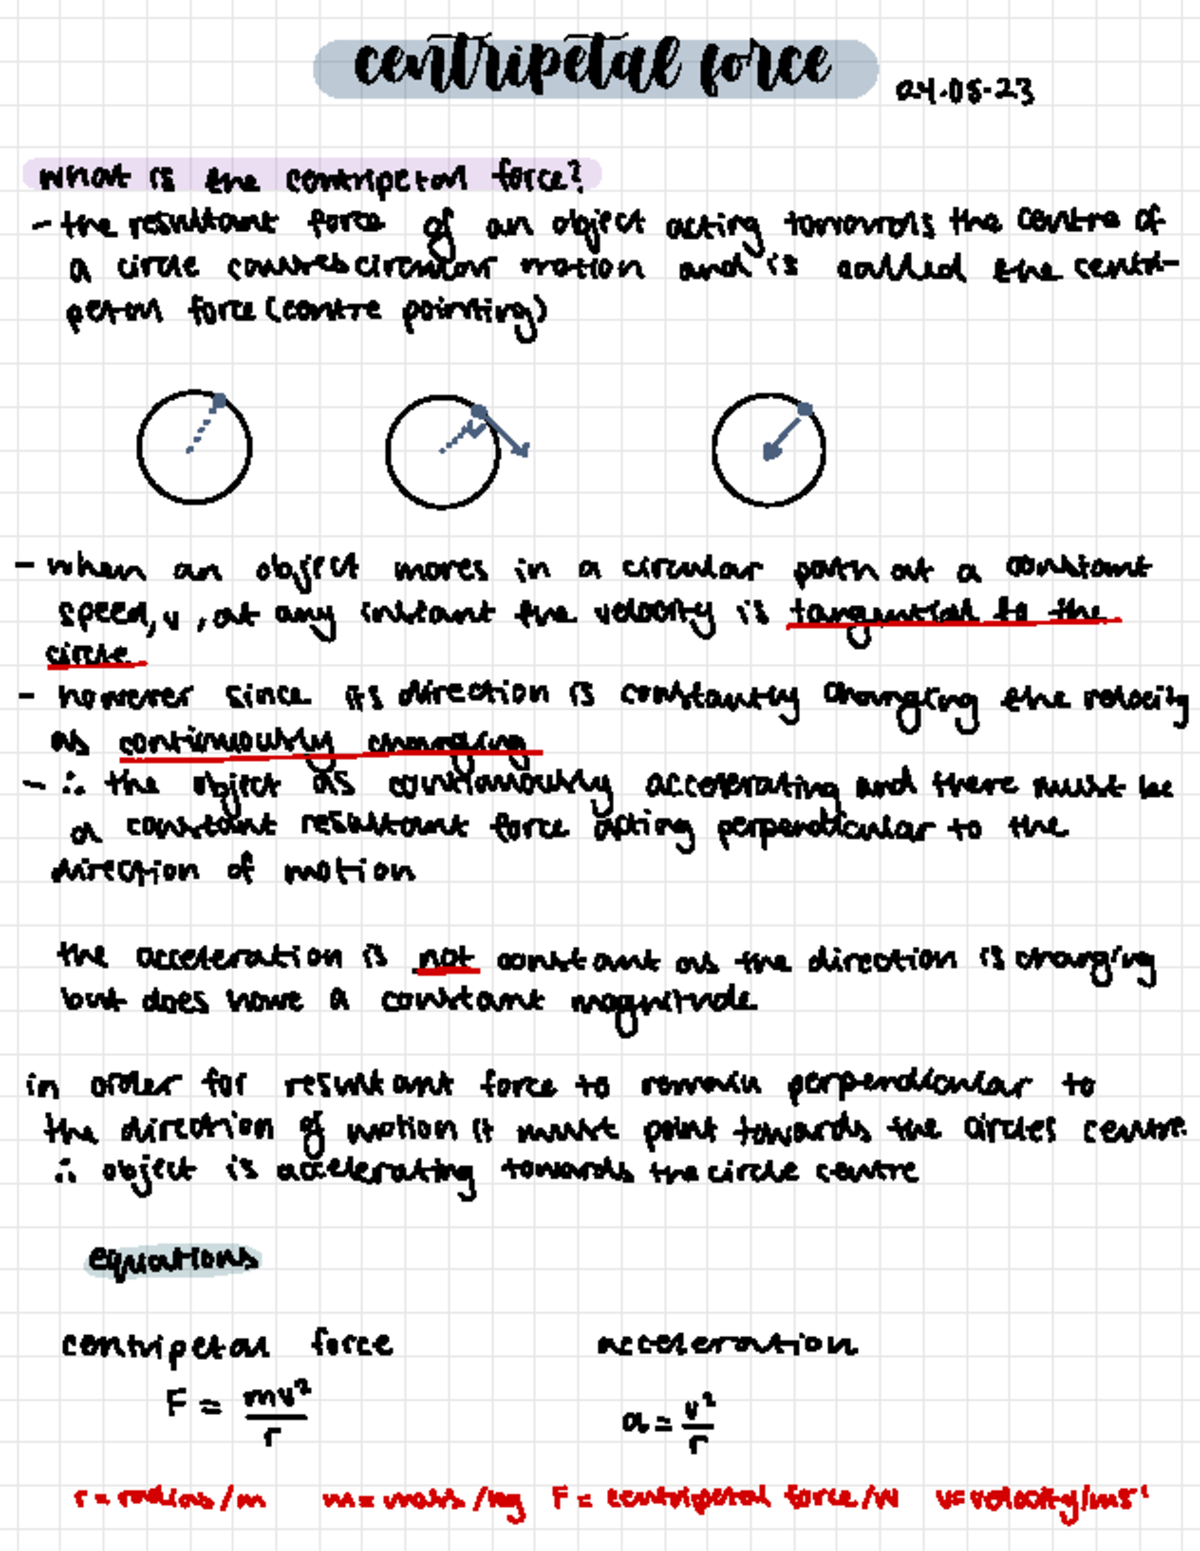 centripetal force
24.05.23
what is the centripetal force?
- the resultant force of an object acting towards the centre of
a circle causes circular motion and is called the centri-
petal force (centre pointing)
- when an object moves in a circular path at a constant
speed, v, at any instant the velocity is tangential to the
circle
- however since its direction is constantly changing the velocity
is continuously changing
- ∴ the object is continuously accelerating and there must be
a constant resultant force acting perpendicular to the
direction of motion
the acceleration is not constant as the direction is changing
but does have a constant magnitude
in order for resultant force to remain perpendicular to
the direction of motion it must point towards the circles centre
∴ object is accelerating towards the circle centre
equations
centripetal force acceleration
F = mv²/r a = v²/r
r = radius/m m = mass/kg F = centripetal force/N v = velocity/ms⁻¹